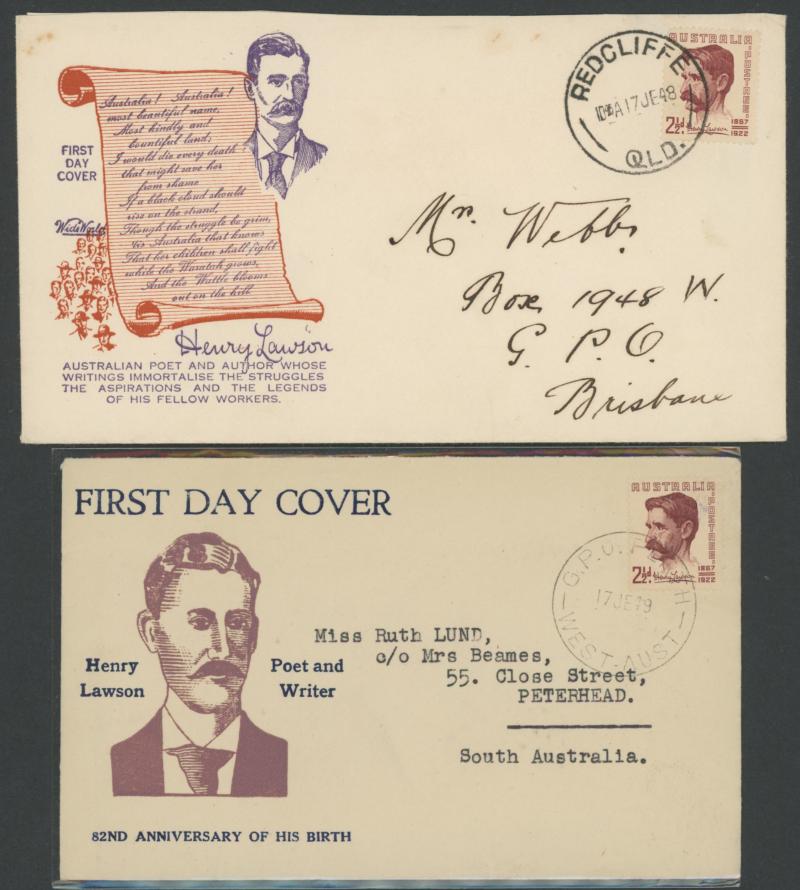 Australia! Australia!
most beautiful name,
Most kindly and
bountiful land;
I would die every death
that might save her
from shame
If a black cloud should
rise on the strand,
Though the struggle be grim,
'tis Australia that knows
That her children shall fight
while the Waratah grows,
And the Wattle blooms
out on the hill
FIRST
DAY
COVER
WideWorld
Henry Lawson
AUSTRALIAN POET AND AUTHOR WHOSE
WRITINGS IMMORTALISE THE STRUGGLES
THE ASPIRATIONS AND THE LEGENDS
OF HIS FELLOW WORKERS.
REDCLIFFE
17JE48
QLD.
AUSTRALIA
POSTAGE
2½d.
Henry Lawson
1867
1922
Mr. Webbs
Box 1948 W.
G. P. O.
Brisbane
FIRST DAY COVER
Henry
Lawson
Poet and
Writer
82ND ANNIVERSARY OF HIS BIRTH
AUSTRALIA
POSTAGE
2½d.
Henry Lawson
1867
1922
17JE49
WEST-AUST
Miss Ruth LUND,
c/o Mrs Beames,
55. Close Street,
PETERHEAD.
South Australia.